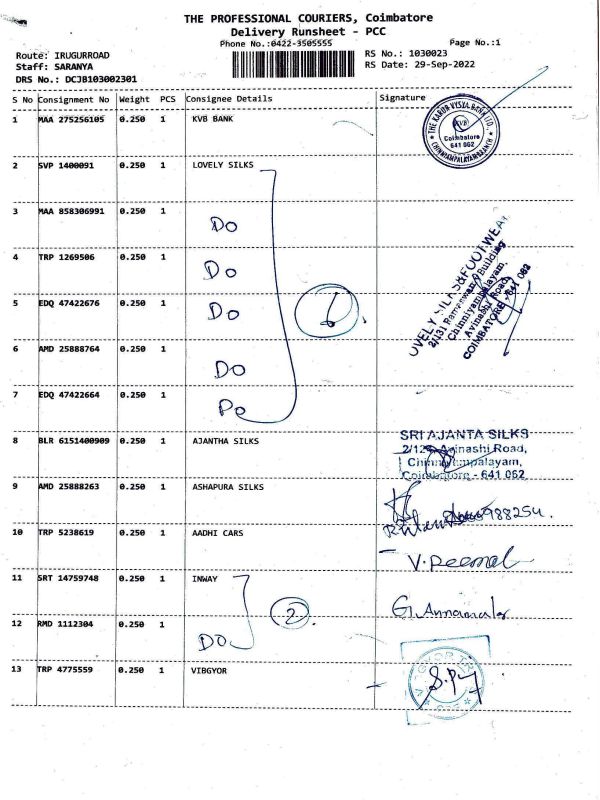 THE PROFESSIONAL COURIERS, Coimbatore
Delivery Runsheet - PCC
Phone No.:0422-3505555
Page No.:1
Route: IRUGURROAD
RS No.: 1030023
Staff: SARANYA
RS Date: 29-Sep-2022
DRS No.: DCJB103002301
S No Consignment No Weight PCS Consignee Details Signature
1 MAA 275256105 0.250 1 KVB BANK
THE KARUR VYSYA BANK LTD.,
KVB
Coimbatore
641 062
CHINNIAMPALAYAM BRANCH
2 SVP 1400091 0.250 1 LOVELY SILKS
3 MAA 858306991 0.250 1 Do
4 TRP 1269506 0.250 1 Do
5 EDQ 47422676 0.250 1 Do
LOVELY SILKS & FOOTWEAR
Building
Chinniyampalayam,
Avinashi Road,
COIMBATORE - 641 062
6 AMD 25888764 0.250 1 Do
7 EDQ 47422664 0.250 1 Do
8 BLR 6151400909 0.250 1 AJANTHA SILKS
SRI AJANTA SILKS
Avinashi Road,
Chinniyampalayam,
Coimbatore - 641 062
9 AMD 25888263 0.250 1 ASHAPURA SILKS
10 TRP 5238619 0.250 1 AADHI CARS
11 SRT 14759748 0.250 1 INWAY
2
12 RMD 1112304 0.250 1 DO
13 TRP 4775559 0.250 1 VIBGYOR